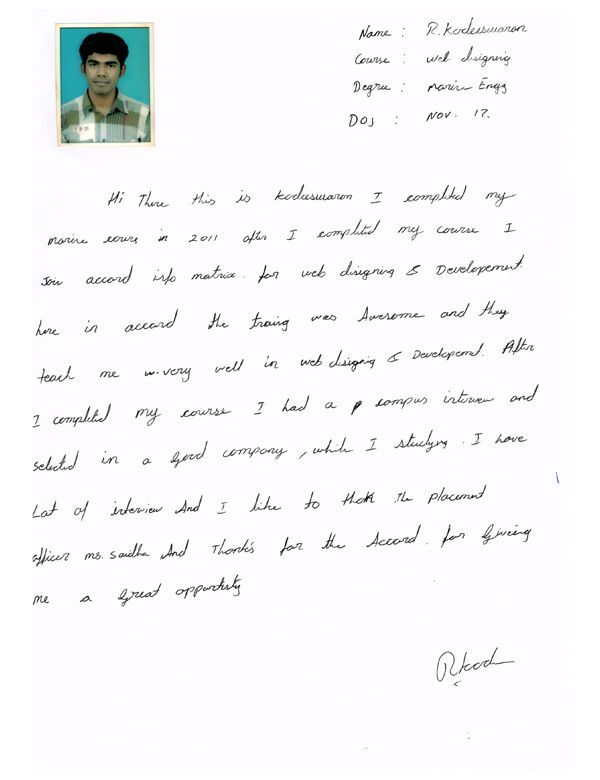 Name : R. Kodeeswaran
Course : web disigning
Degree : Marine Engg
DOJ : NOV. 17.
Hi There this is kodeeswaran I complited my
marine cours in 2011 after I complited my course I
Join accord info matrix. for web disigning & Developement.
here in accord the traing was Awesome and they
teach me very well in web disigning & Developemt. After
I complited my course I had a campus interview and
selected in a Good company, while I studying. I have
Lot of interview And I like to thank The placement
officer ms. Saidha And Thanks for the Accord. for Giveing
me a Great oppartisty